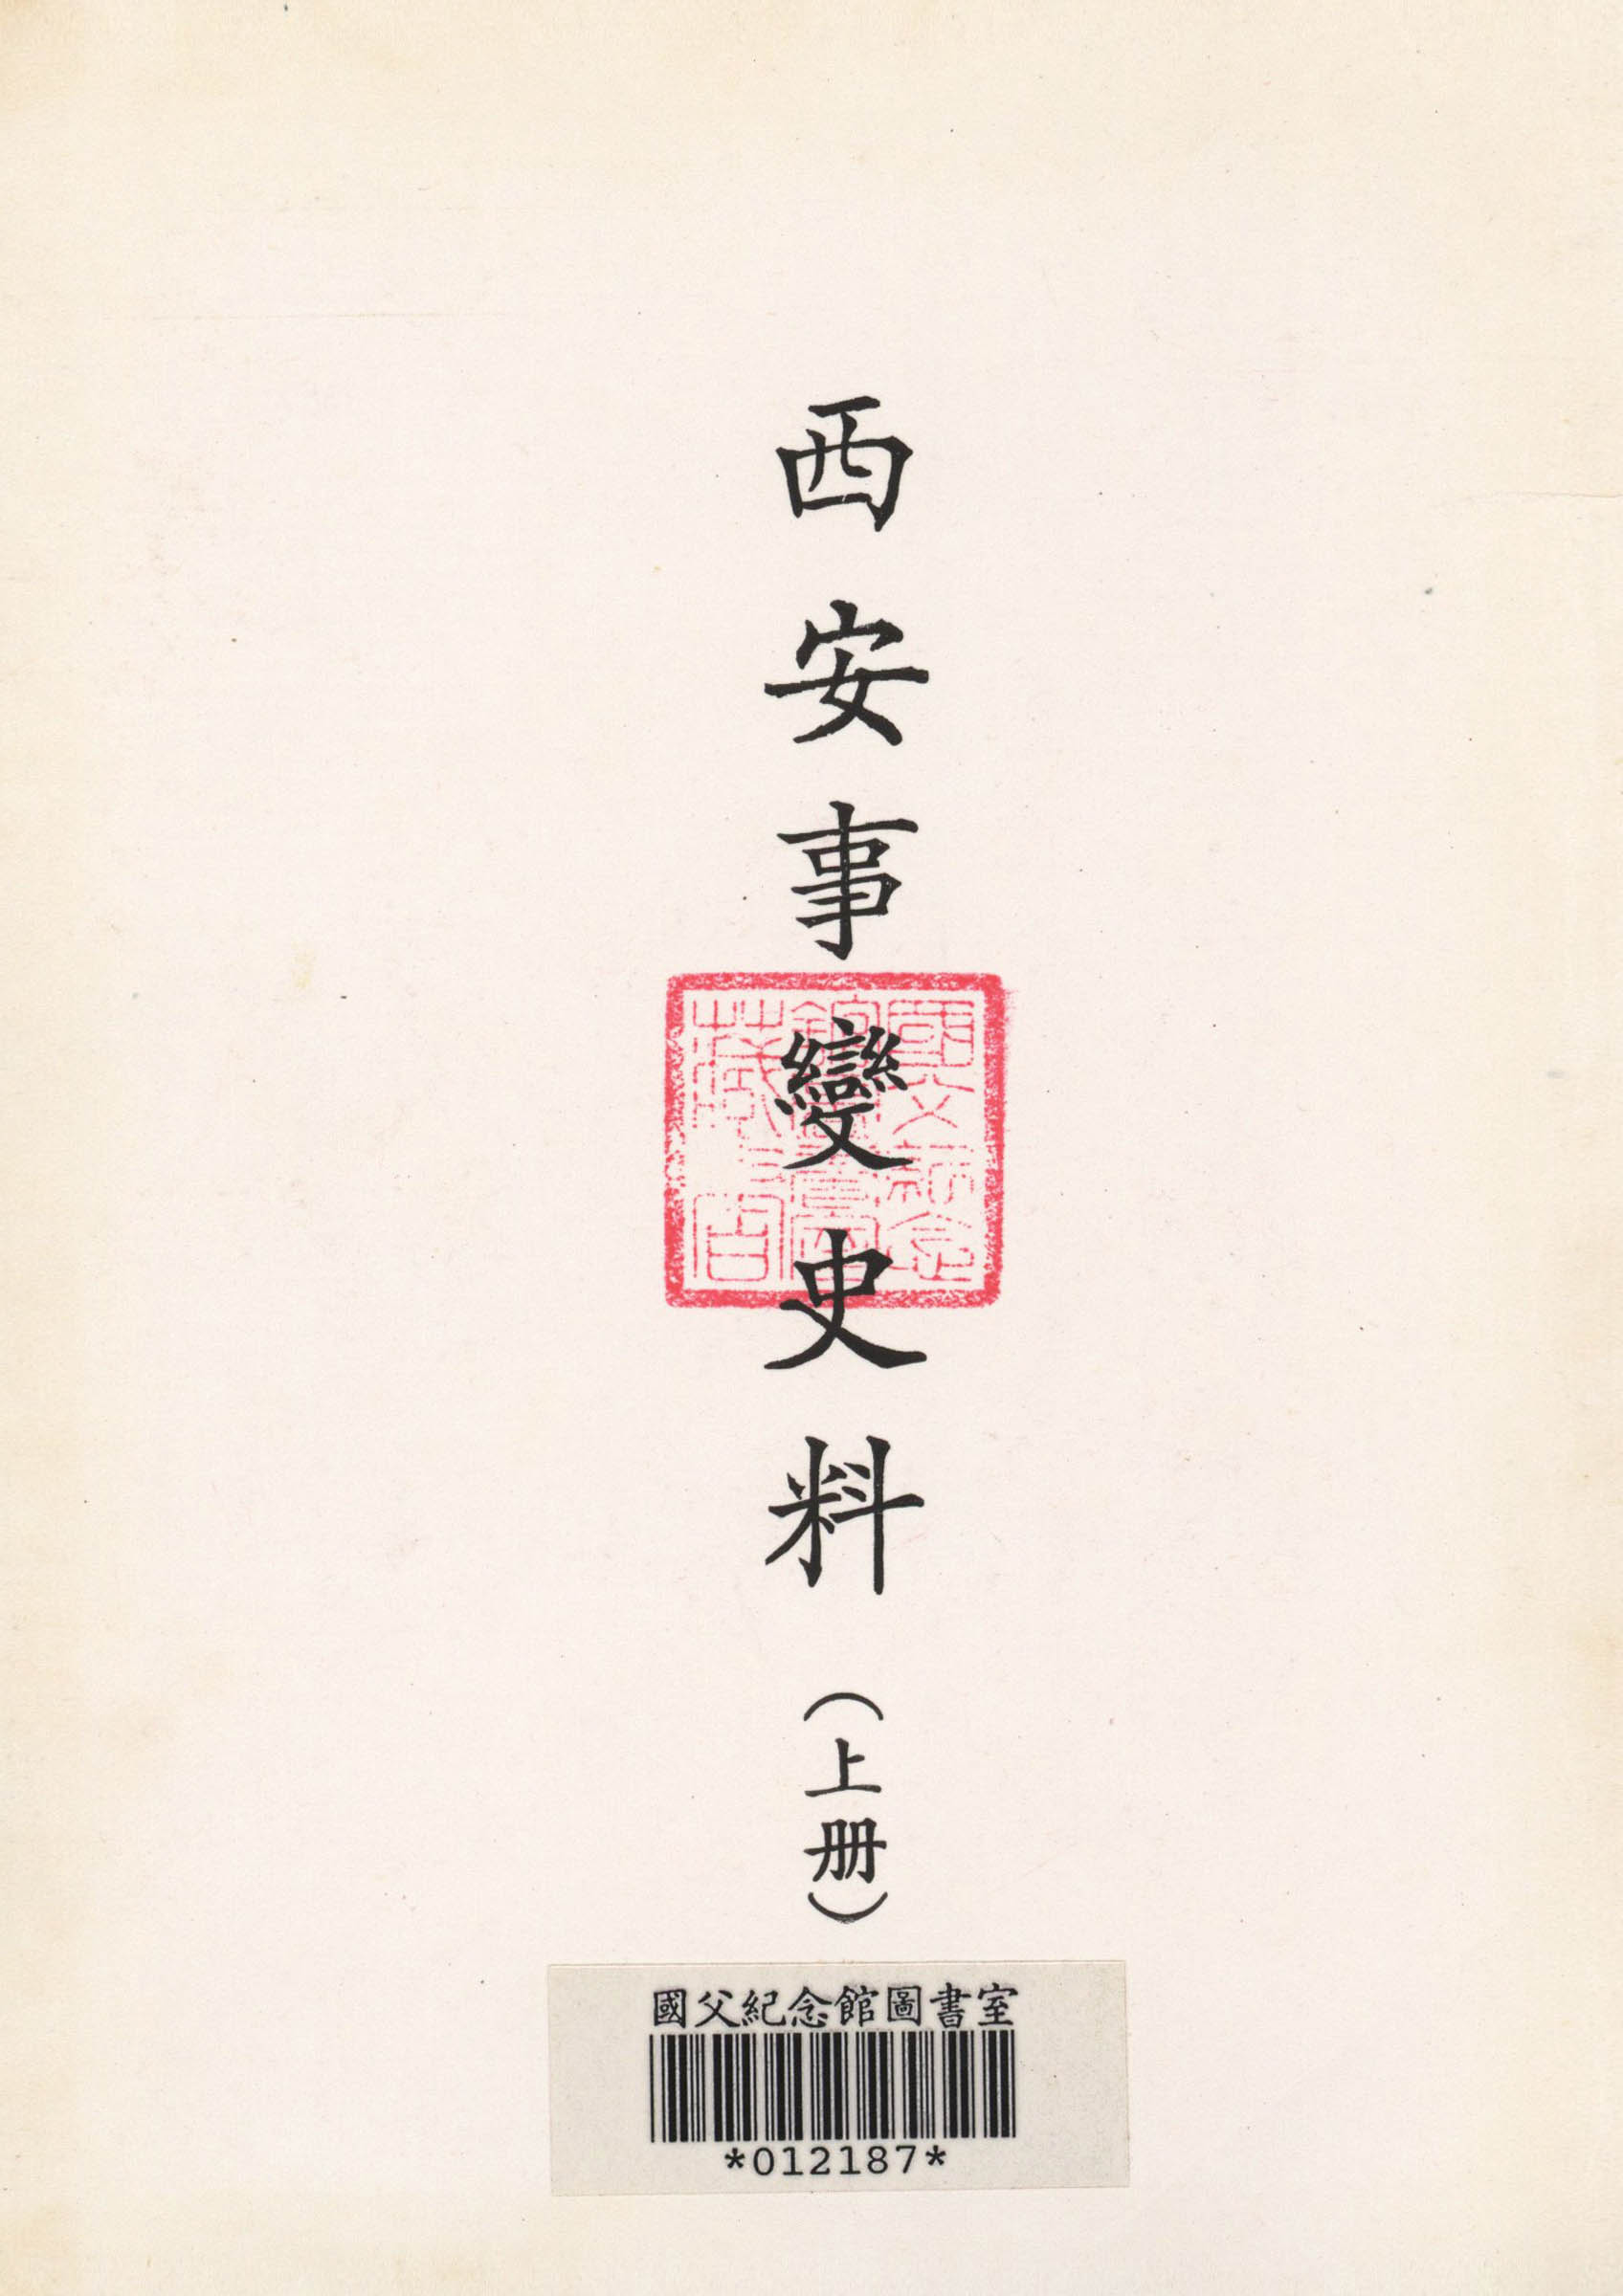 西安事變史料
（上册）
國父紀念館圖書室藏書
國父紀念館圖書室
*012187*